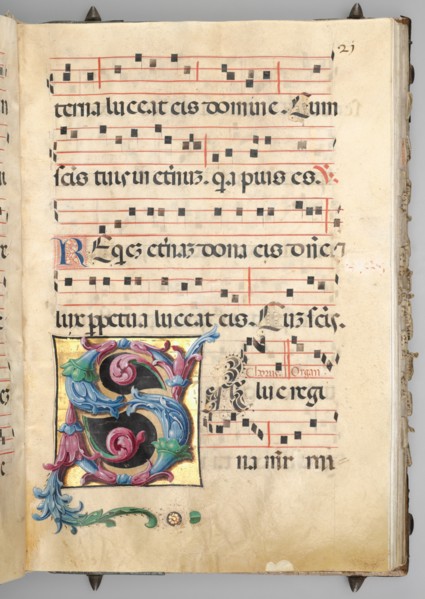 21
terna luceat eis domine. Cum
scīs tuis in eternuz. qa pius es. V.
REqez eternaz dona eis dn̄e et
lux ppetua luceat eis. Cuz scīs.
Chorus Organ
SAlve regi
na mīr mi